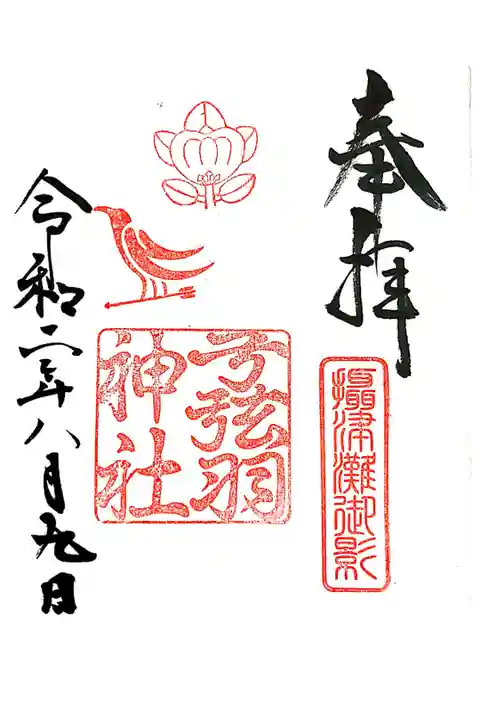 奉拝
摂津灘御影
弓弦羽
神社
令和二年八月九日